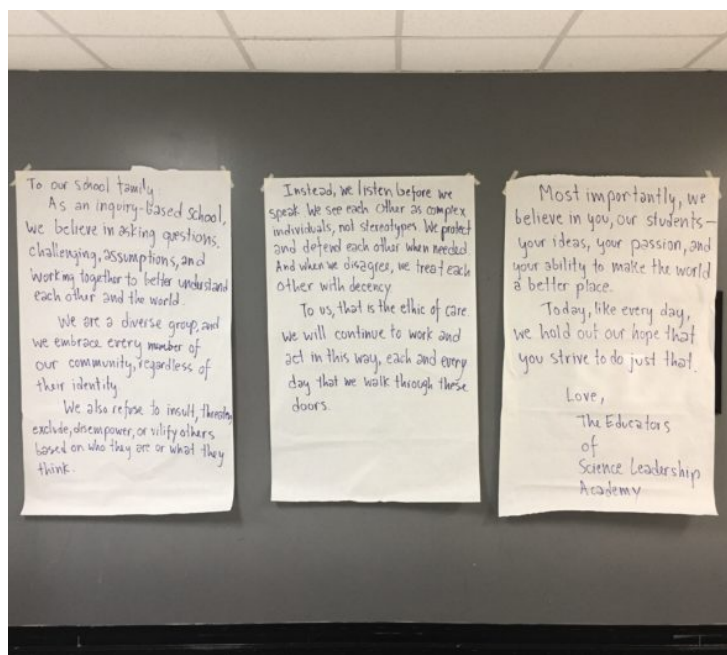 To our school family
As an inquiry-based school,
we believe in asking questions.
challenging, assumptions, and
working together to better understand
each other and the world.
We are a diverse group, and
we embrace every member of
our community, regardless of
their identity
We also refuse to insult, threaten,
exclude, disempower, or vilify others
based on who they are or what they
think.
Instead, we listen before we
speak. We see each other as complex
individuals, not stereotypes. We protect
and defend each other when needed.
And when we disagree, we treat each
other with decency.
To us, that is the ethic of care
we will continue to work and
act in this way, each and every
day that we walk through these
doors.
Most importantly, we
believe in you, our students—
your ideas, your passion, and
your ability to make the world
a better place.
Today, like every day,
we hold out our hope that
you strive to do just that.
Love,
The Educators
of
Science Leadership
Academy